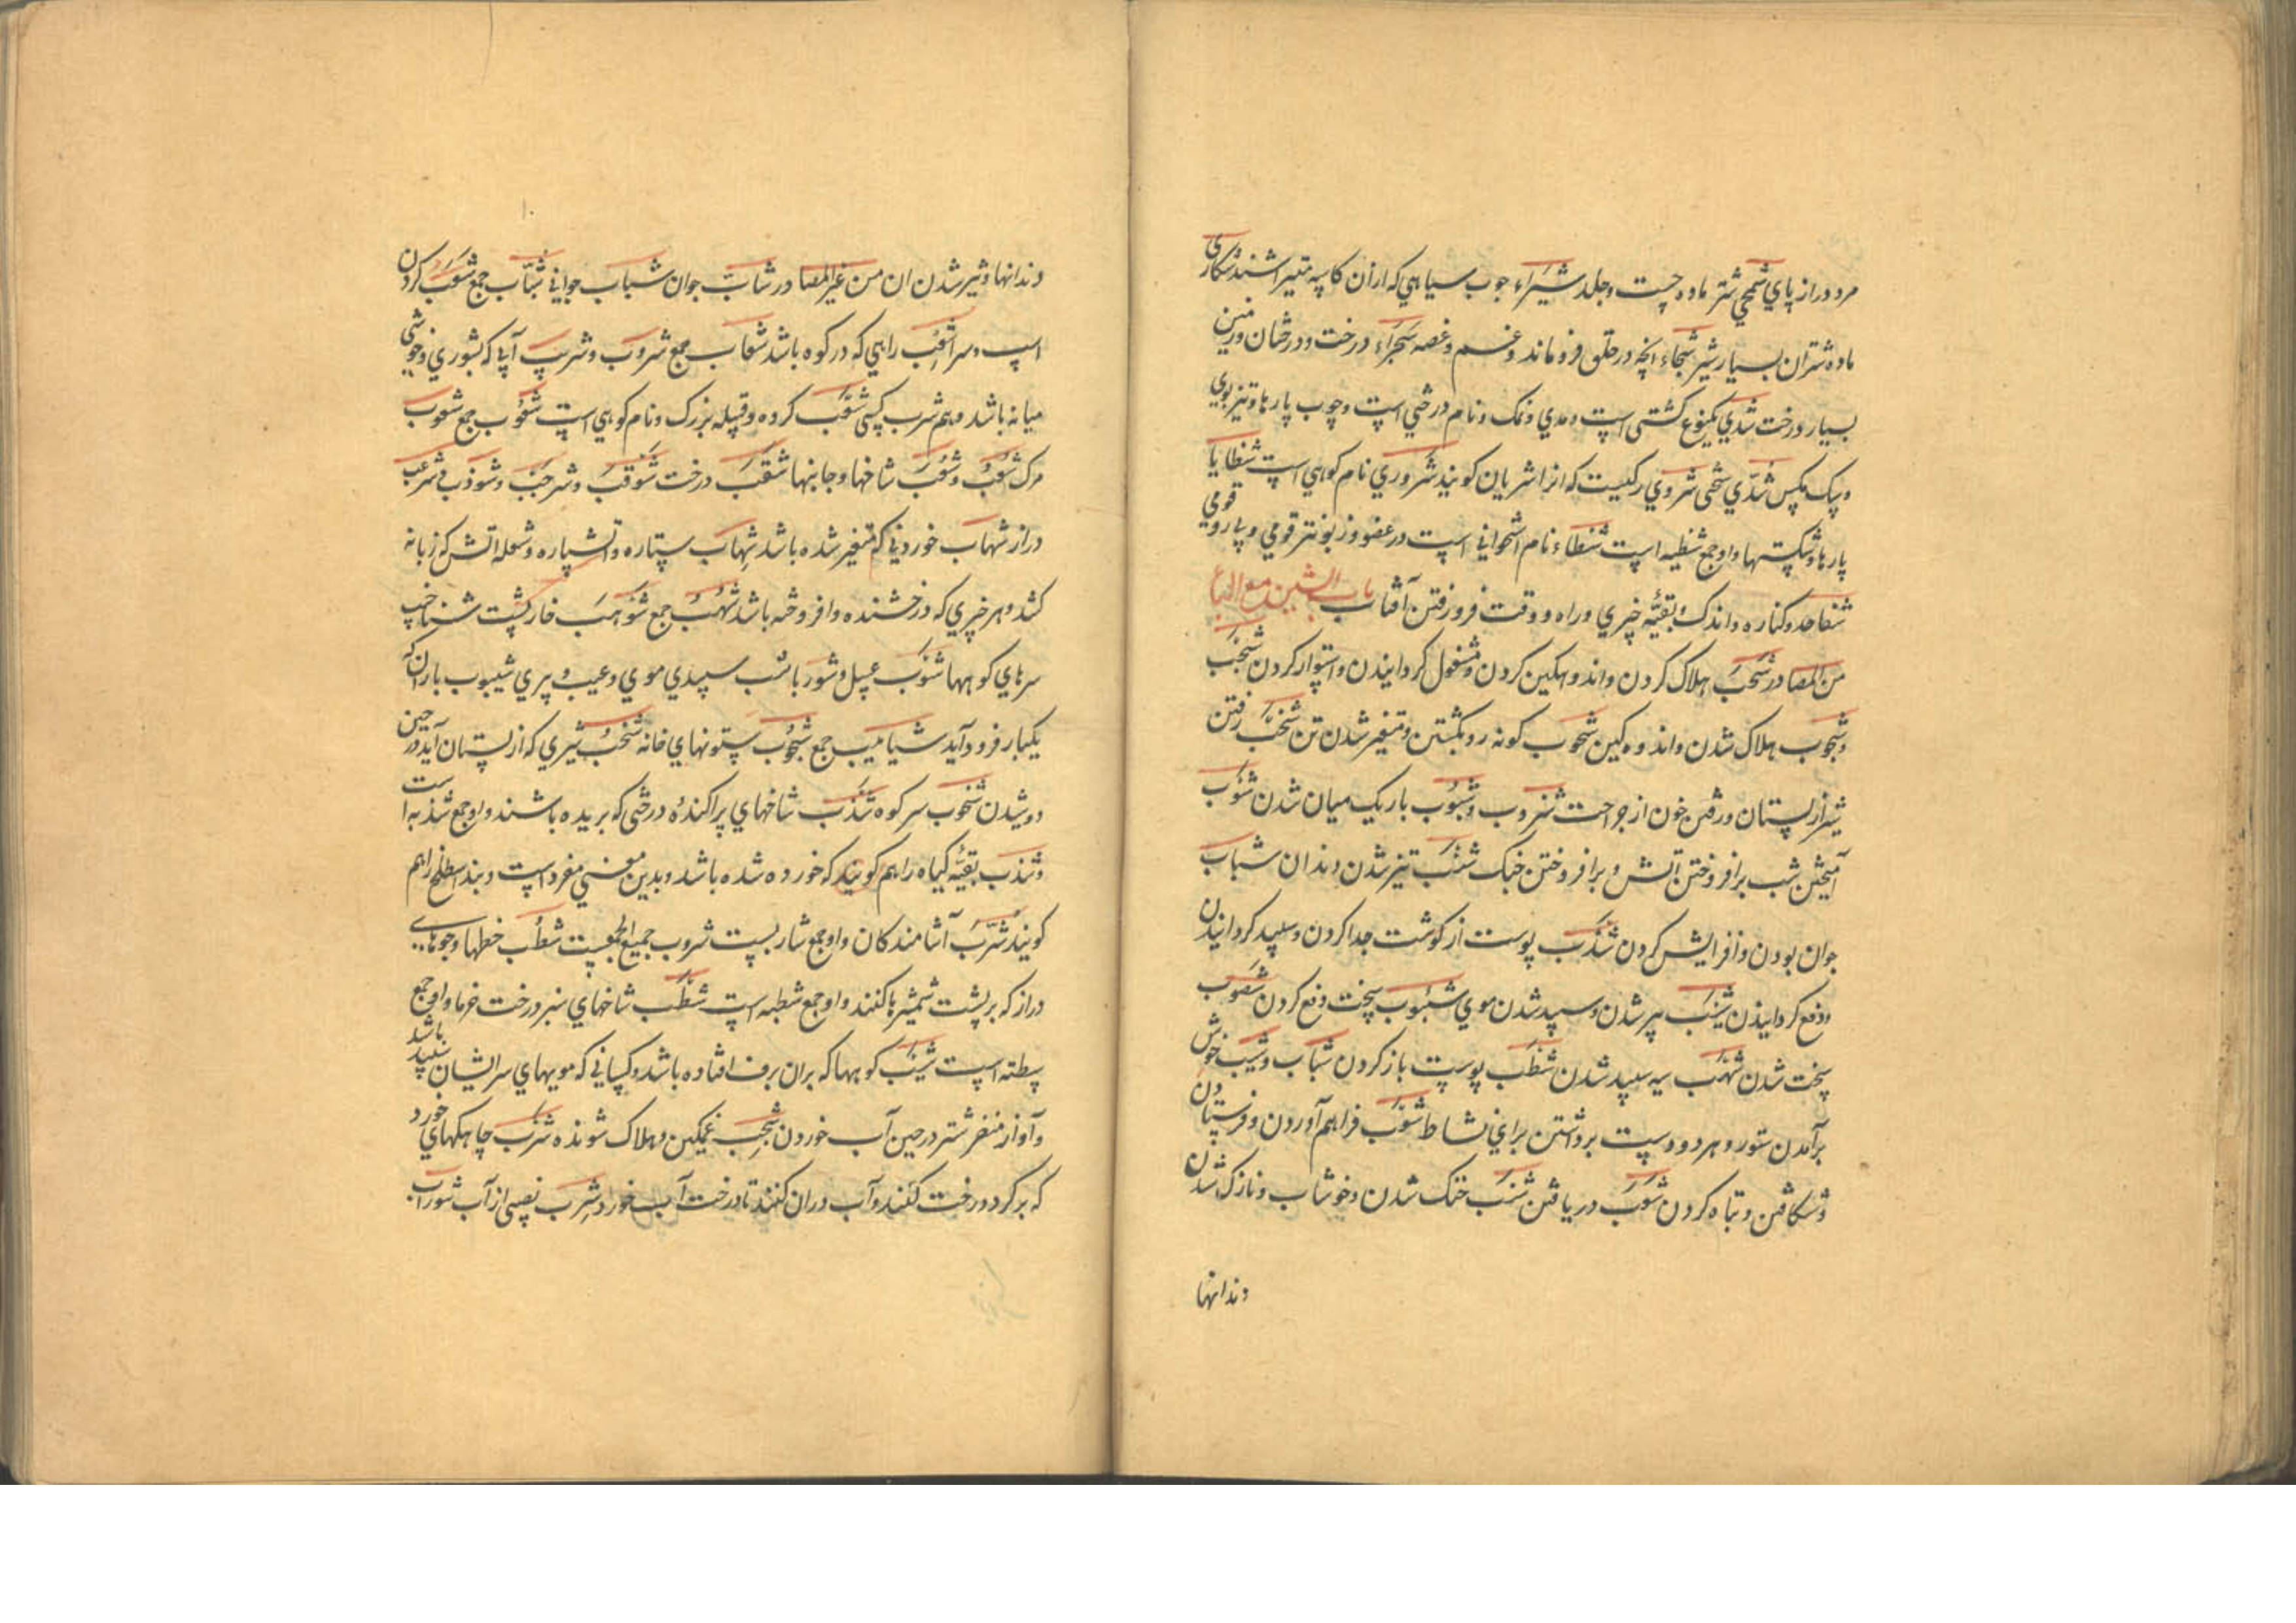 مرد دراز پاي شمحي شتر ماده چست و جلد شیزاء جوب سیاهي که ازان کاسه
ماده شتران بسیار شیر شجاء انچه در حلق فروماند و غم و غصه شجراء درخت و درختان و زمین
بسیار درخت شذي یکنوع کشتی است و نمک و نام درختي است و چوب پارها و تیز بوي
و سک مکس شدّي سختی شروي رکیست که انرا شریان کویند شروري نام کوهي است شظایا
پارها و شکستها و او جمع شظیه است شظاء نام استخواني است در عضو و زبونتر قومي
شفا حد و کناره و اندک و بقیّه چیزي و راه و وقت فرو رفتن آفتاب باب الشین مع الباء
من المصادر شجب هلاک کردن و اندوهکین کردن و مشغول کردانیدن و استوار کردن شجب
و شجوب هلاک شدن و اندوه کین شحوب کونه رو بکشتن و متغیر شدن تن شخب رفتن
شیر از پستان و رفتن خون از جراحت شزوب و شسوب باریک میان شدن شوب
آمیختن شب برافروختن آتش و برافروختن جنک شنب تیز شدن دندان شباب
جوان بودن و افزایش کردن شذب پوست از کوشت جدا کردن و سپید کردانیدن
و دفع کردانیدن شیب پیر شدن و سپید شدن موي دفع کردن
سخت شدن شهب سیه سپید شدن شطب پوست باز کردن شباب و شبیب خوش
برآمدن ستور و هر دو دست برداشتن براي نشاط شعب فراهم آوردن و فرستادن
و شکافتن و تباه کردن دریافتن شنب خنک شدن و خوشاب و نازک شدن
دندانها
دندانها و تیز شدن ان من غیر المصادر شابّ جوان شباب جواني شبّاب جمع
اسپ و سرا شعب راهي که در کوه باشد شعاب جمع شروب و شریب آبي که بشوري و خوشي
میانه باشد و هم شرب کسی شعب کروه و قبیله بزرک و نام کوهي است شعوب جمع شعوب
مرک شعب و شعب شاخها و جانبها شقب درخت شوقب و شرحب و شوذب و شرعب
دراز شهاب خوردني که متغیر شده باشد شهاب ستاره و آتشپاره و شعله آتش که زبانه
کشد و هر چیزي که درخشنده و افروخته باشد شهب جمع شوهب خارپشت شناخیب
سرهاي کوهها شوب عسل و شوربا شیب سپیدي موي و عیب و پیري شیبوب باران که
یکبار فرود آید شآبیب جمع شجوب ستونهاي خانه شخب شیري که از پستان آید در حین
دوشیدن شنخوب سر کوه شذب شاخهاي پراکنده درختی که بریده باشند و او جمع شذبه است
و شذب بقیّه کیاه را هم کویند که خورده شده باشد و بدین معنی مفرد است و بند را هم
کویند شرّب آشامندکان و او جمع شاربست شروب جمیع الجمعیست شطب خطها و جویهاي
دراز که بر پشت شمشیرها کنند و او جمع شطبه است شطب شاخهاي سبز درخت خرما و او جمع
شطبه است شیب کوهها که بران برف افتاده باشد و کساني که مویهاي سر ایشان سپید باشد
و آواز شتر در حین آب خوردن شجب غمکین و هلاک شونده شرب چاهکهاي خورد
که بر کرد درخت کنند و آب دران کنند تا درخت آب خورد شرب نصیبي از آب شوراب